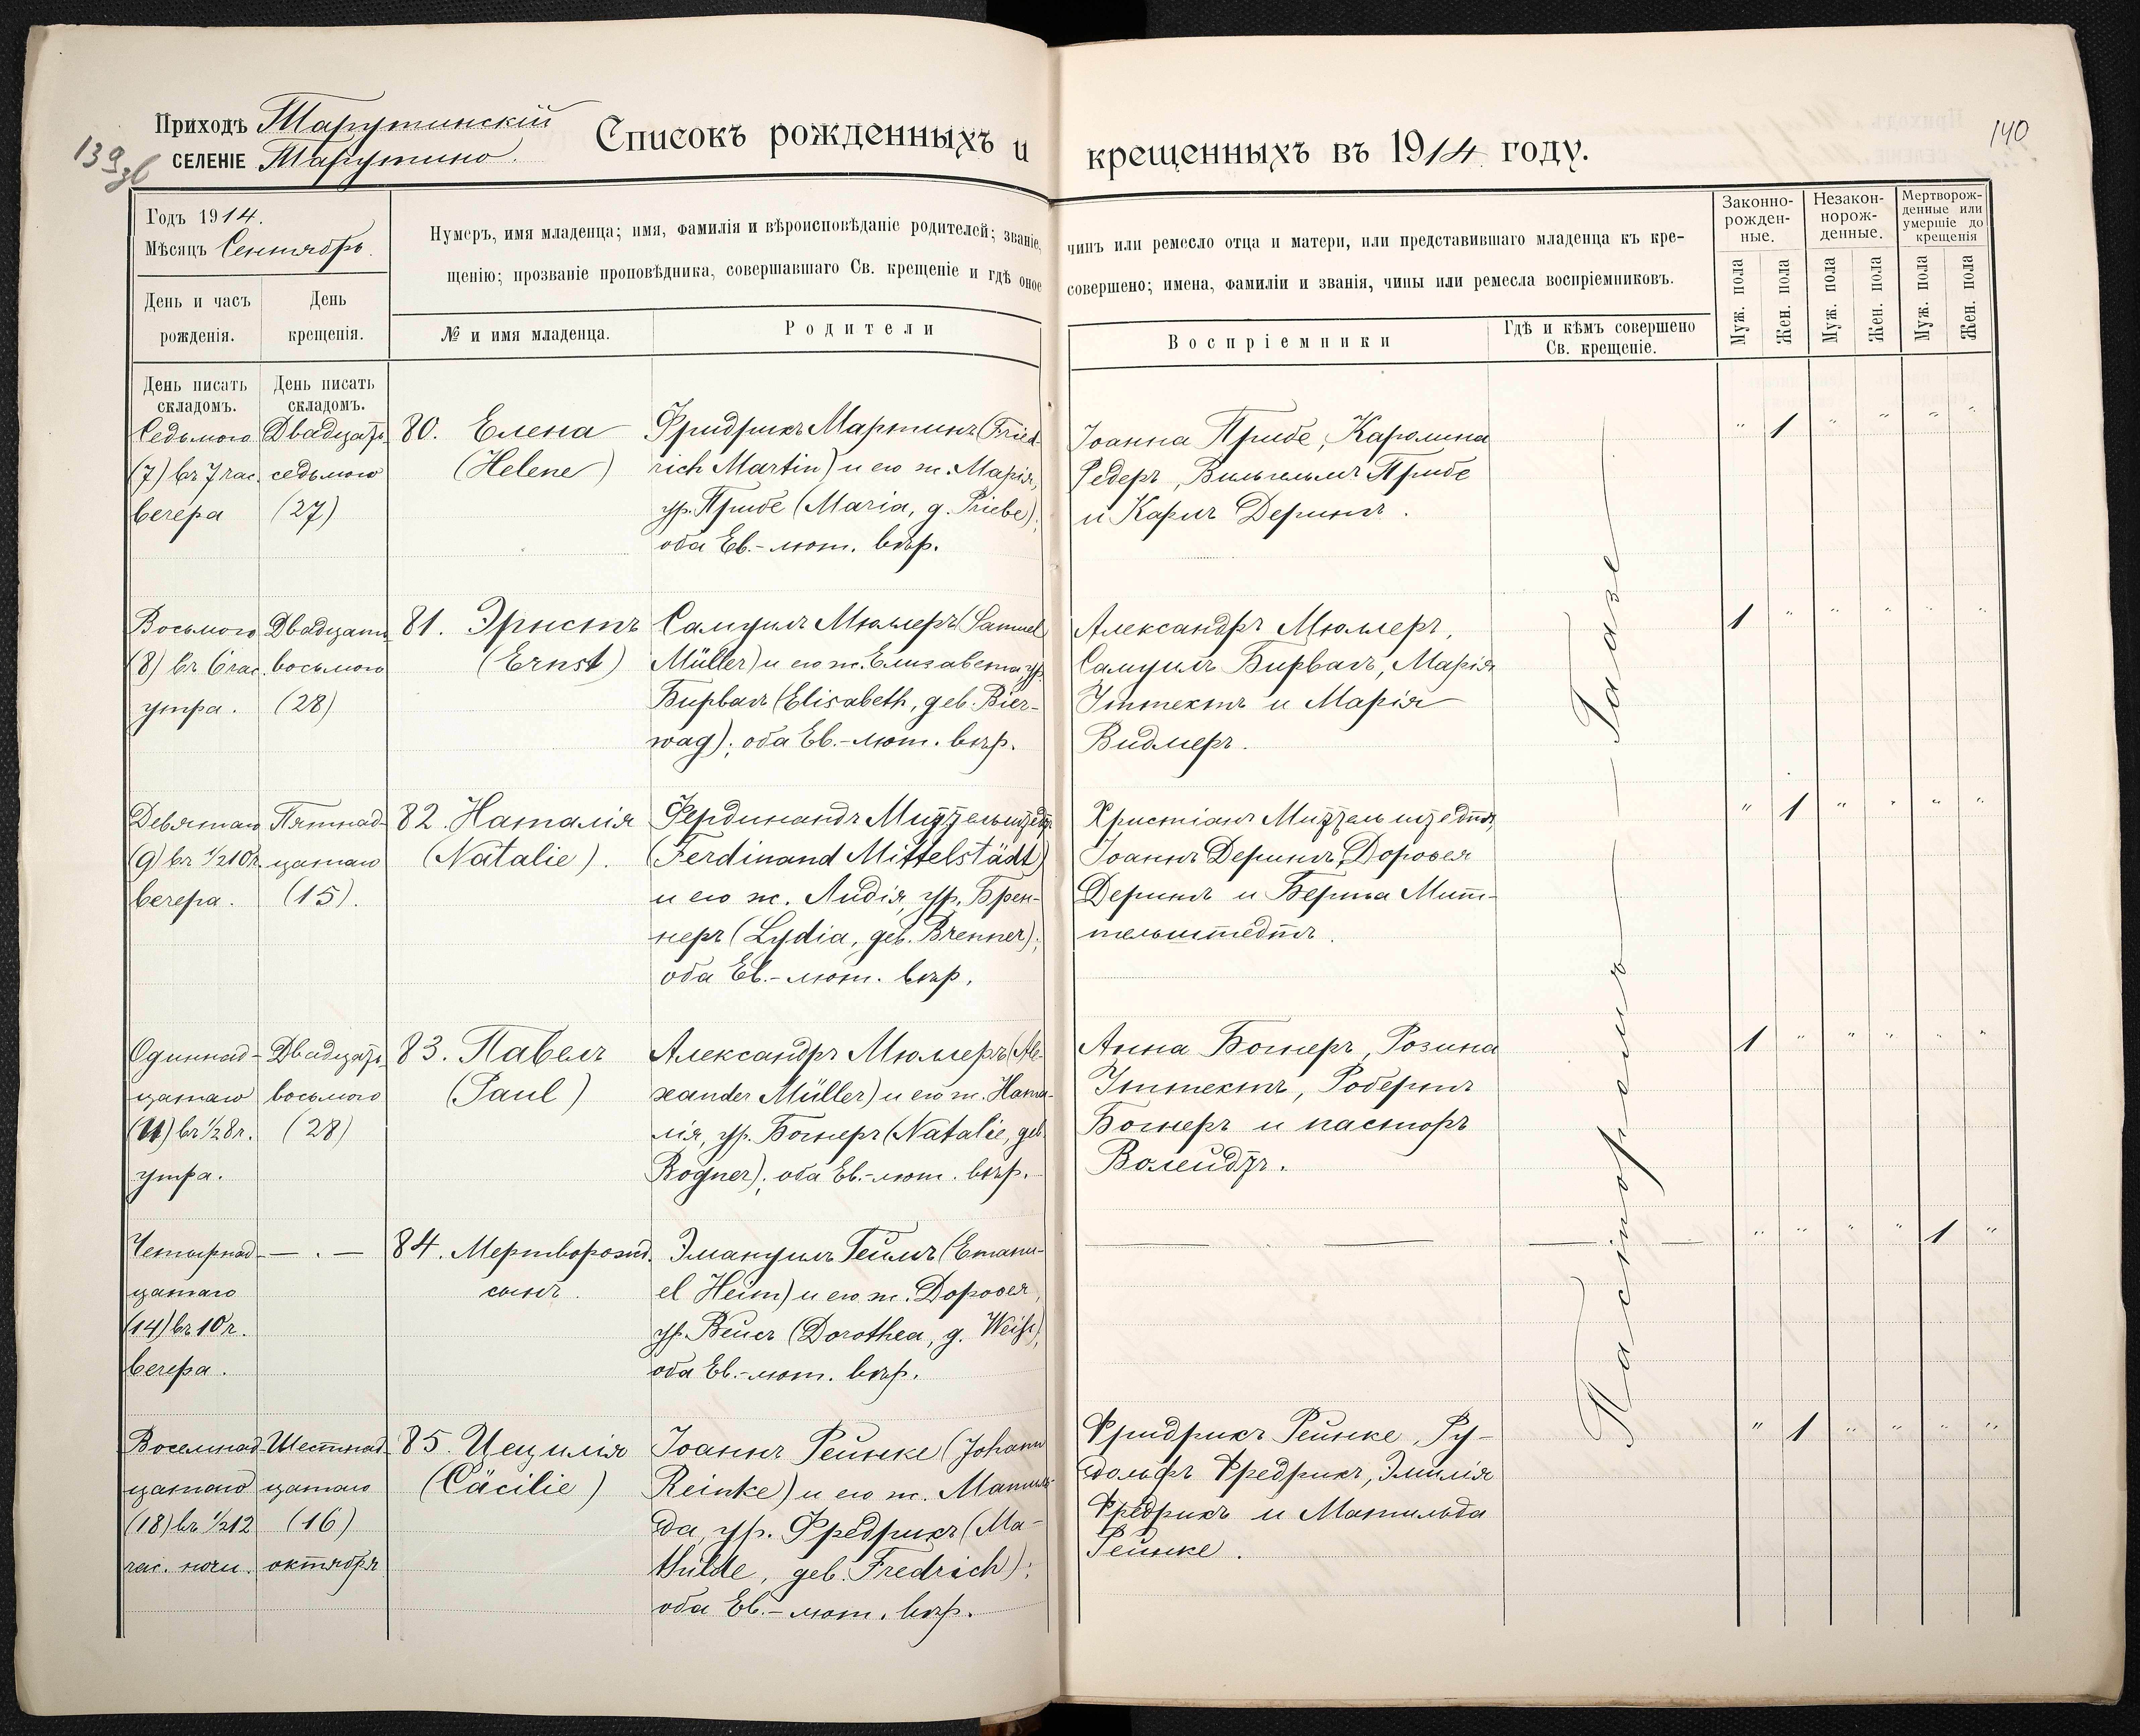 Приходъ Тарутинскій
139 об
СЕЛЕНІЕ Тарутино.
Списокъ рожденныхъ и крещенныхъ въ 1914 году.
140
Годъ 1914.
Мѣсяцъ Сентябрь.
День и часъ рожденія.
День крещенія.
Нумеръ, имя младенца; имя, фамилія и вѣроисповѣданіе родителей; званіе, чинъ или ремесло отца и матери, или представившаго младенца къ кре-
щенію; прозваніе проповѣдника, совершавшаго Св. крещеніе и гдѣ оное совершено; имена, фамиліи и званія, чины или ремесла воспріемниковъ.
№ и имя младенца.
Родители
Воспріемники
Гдѣ и кѣмъ совершено
Св. крещеніе.
Законно-
рожден-
ные.
Незакон-
норож-
денные.
Мертворож-
денные или
умершіе до
крещенія
Муж. пола
Жен. пола
Муж. пола
Жен. пола
Муж. пола
Жен. пола
День писать
складомъ.
День писать
складомъ.
Седьмого
(7) въ 7 час.
вечера
Двадцать
седьмого
(27)
80. Елена
(Helene)
Фридрихъ Мартинъ (Fried-
rich Martin) и его ж. Марія,
ур. Прибе (Maria, g. Priebe);
оба Ев.-лют. вѣр.
Іоанна Прибе, Каролина
Редеръ, Вильгельмъ Прибе
и Карлъ Дерингъ.
" 1 " " " "
Восьмого
(8) въ 6 час.
утра.
Двадцать
восьмого
(28)
81. Эрнстъ
(Ernst)
Самуилъ Мюллеръ (Samuel
Müller) и его ж. Елизавета, ур.
Бирвагъ (Elisabeth, geb. Bier-
wag); оба Ев.-лют. вѣр.
Александръ Мюллеръ,
Самуилъ Бирвагъ, Марія
Уттехтъ и Марія
Видмеръ.
1 " " " " "
Девятаго
(9) въ ½10 ч.
вечера.
Пятнад-
цатаго
(15).
82. Наталія
(Natalie).
Фердинандъ Миттельштедтъ
(Ferdinand Mittelstädt)
и его ж. Лидія, ур. Брен-
неръ (Lydia, geb. Brenner);
оба Ев.-лют. вѣр.
Христіанъ Миттельштедтъ,
Іоаннъ Дерингъ, Доровея
Дерингъ и Берта Мит-
тельштедтъ.
" 1 " " " "
Одиннад-
цатаго
(11) въ ½8 ч.
утра.
Двадцать
восьмого
(28)
83. Павелъ
(Paul)
Александръ Мюллеръ (Ale-
xander Müller) и его ж. Ната-
лія, ур. Богнеръ (Natalie, geb.
Bogner); оба Ев.-лют. вѣр.
Анна Богнеръ, Розина
Уттехтъ, Робертъ
Богнеръ и пасторъ
1 " " " " "
Четырнад-
цатаго
(14) въ 10 ч.
вечера.
— . —
84. Мертворожд.
сынъ.
Эмануилъ Геймъ (Emanu-
el Heim) и его ж. Доровея,
ур. Вейсъ (Dorothea, g. Weiß);
оба Ев.-лют. вѣр.
" " " " 1 "
Восемнад-
цатаго
(18) въ ½12
час. ночи.
Шестнад-
цатаго
(16)
октября
85. Цецилія
(Cäcilie)
Іоаннъ Рейнке (Johann
Reinke) и его ж. Матиль-
да, ур. Фредрихъ (Ma-
thilde, geb. Fredrich);
оба Ев.-лют. вѣр.
Фридрихъ Рейнке, Ру-
дольфъ Фредрихъ, Эмилія
Фредрихъ и Матильда
Рейнке.
" 1 " " " "
Пасторомъ — Гаазе